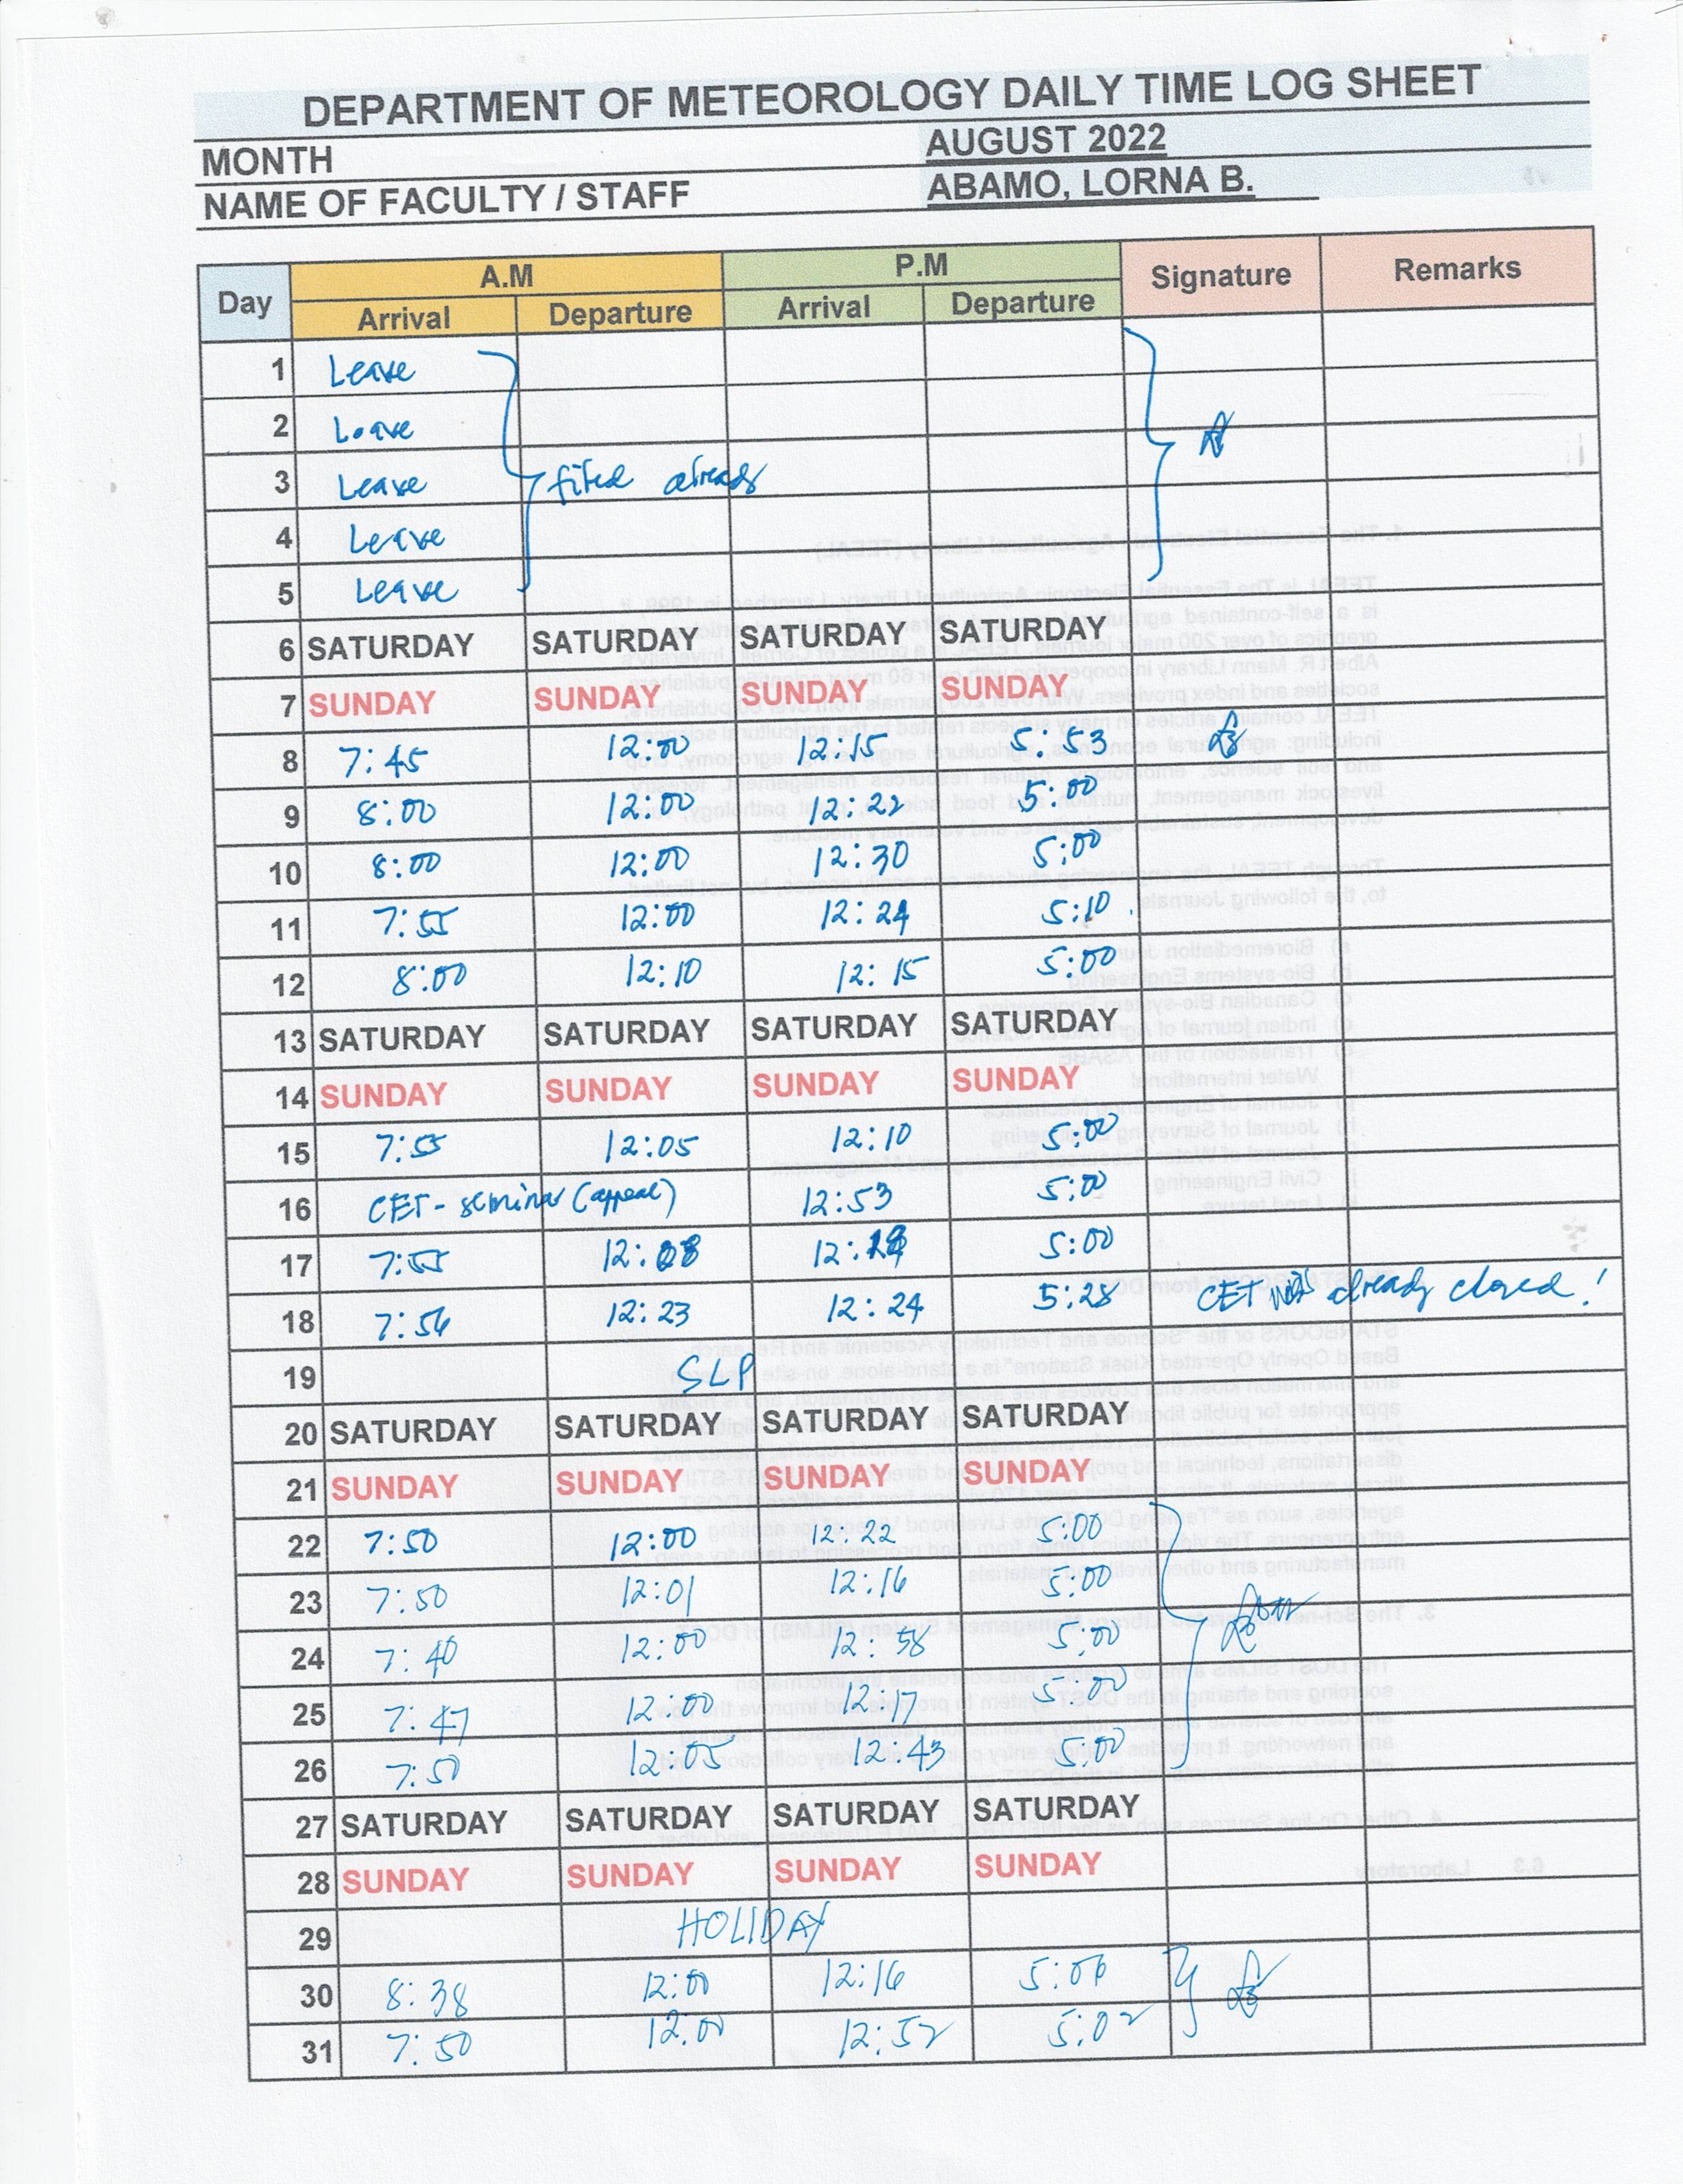 DEPARTMENT OF METEOROLOGY DAILY TIME LOG SHEET
MONTH AUGUST 2022
NAME OF FACULTY / STAFF ABAMO, LORNA B.
Day A.M P.M Signature Remarks
Arrival Departure Arrival Departure
1 Leave
2 Leave
3 Leave filed already
4 Leave
5 Leave
6 SATURDAY SATURDAY SATURDAY SATURDAY
7 SUNDAY SUNDAY SUNDAY SUNDAY
8 7:45 12:00 12:15 5:53
9 8:00 12:00 12:22 5:00
10 8:00 12:00 12:30 5:00
11 7:55 12:00 12:24 5:10
12 8:00 12:10 12:15 5:00
13 SATURDAY SATURDAY SATURDAY SATURDAY
14 SUNDAY SUNDAY SUNDAY SUNDAY
15 7:55 12:05 12:10 5:00
16 CET - seminar (appeal) 12:53 5:00
17 7:55 12:08 5:00
18 7:56 12:23 12:24 5:28 CET was already closed!
19 SLP
20 SATURDAY SATURDAY SATURDAY SATURDAY
21 SUNDAY SUNDAY SUNDAY SUNDAY
22 7:50 12:00 12:22 5:00
23 7:50 12:01 12:16 5:00
24 7:40 12:00 12:58 5:00
25 7:47 12:00 12:17 5:00
26 7:50 12:05 12:43 5:00
27 SATURDAY SATURDAY SATURDAY SATURDAY
28 SUNDAY SUNDAY SUNDAY SUNDAY
29 HOLIDAY
30 8:38 12:00 12:16
31 7:50 12:00 12:52 5:02